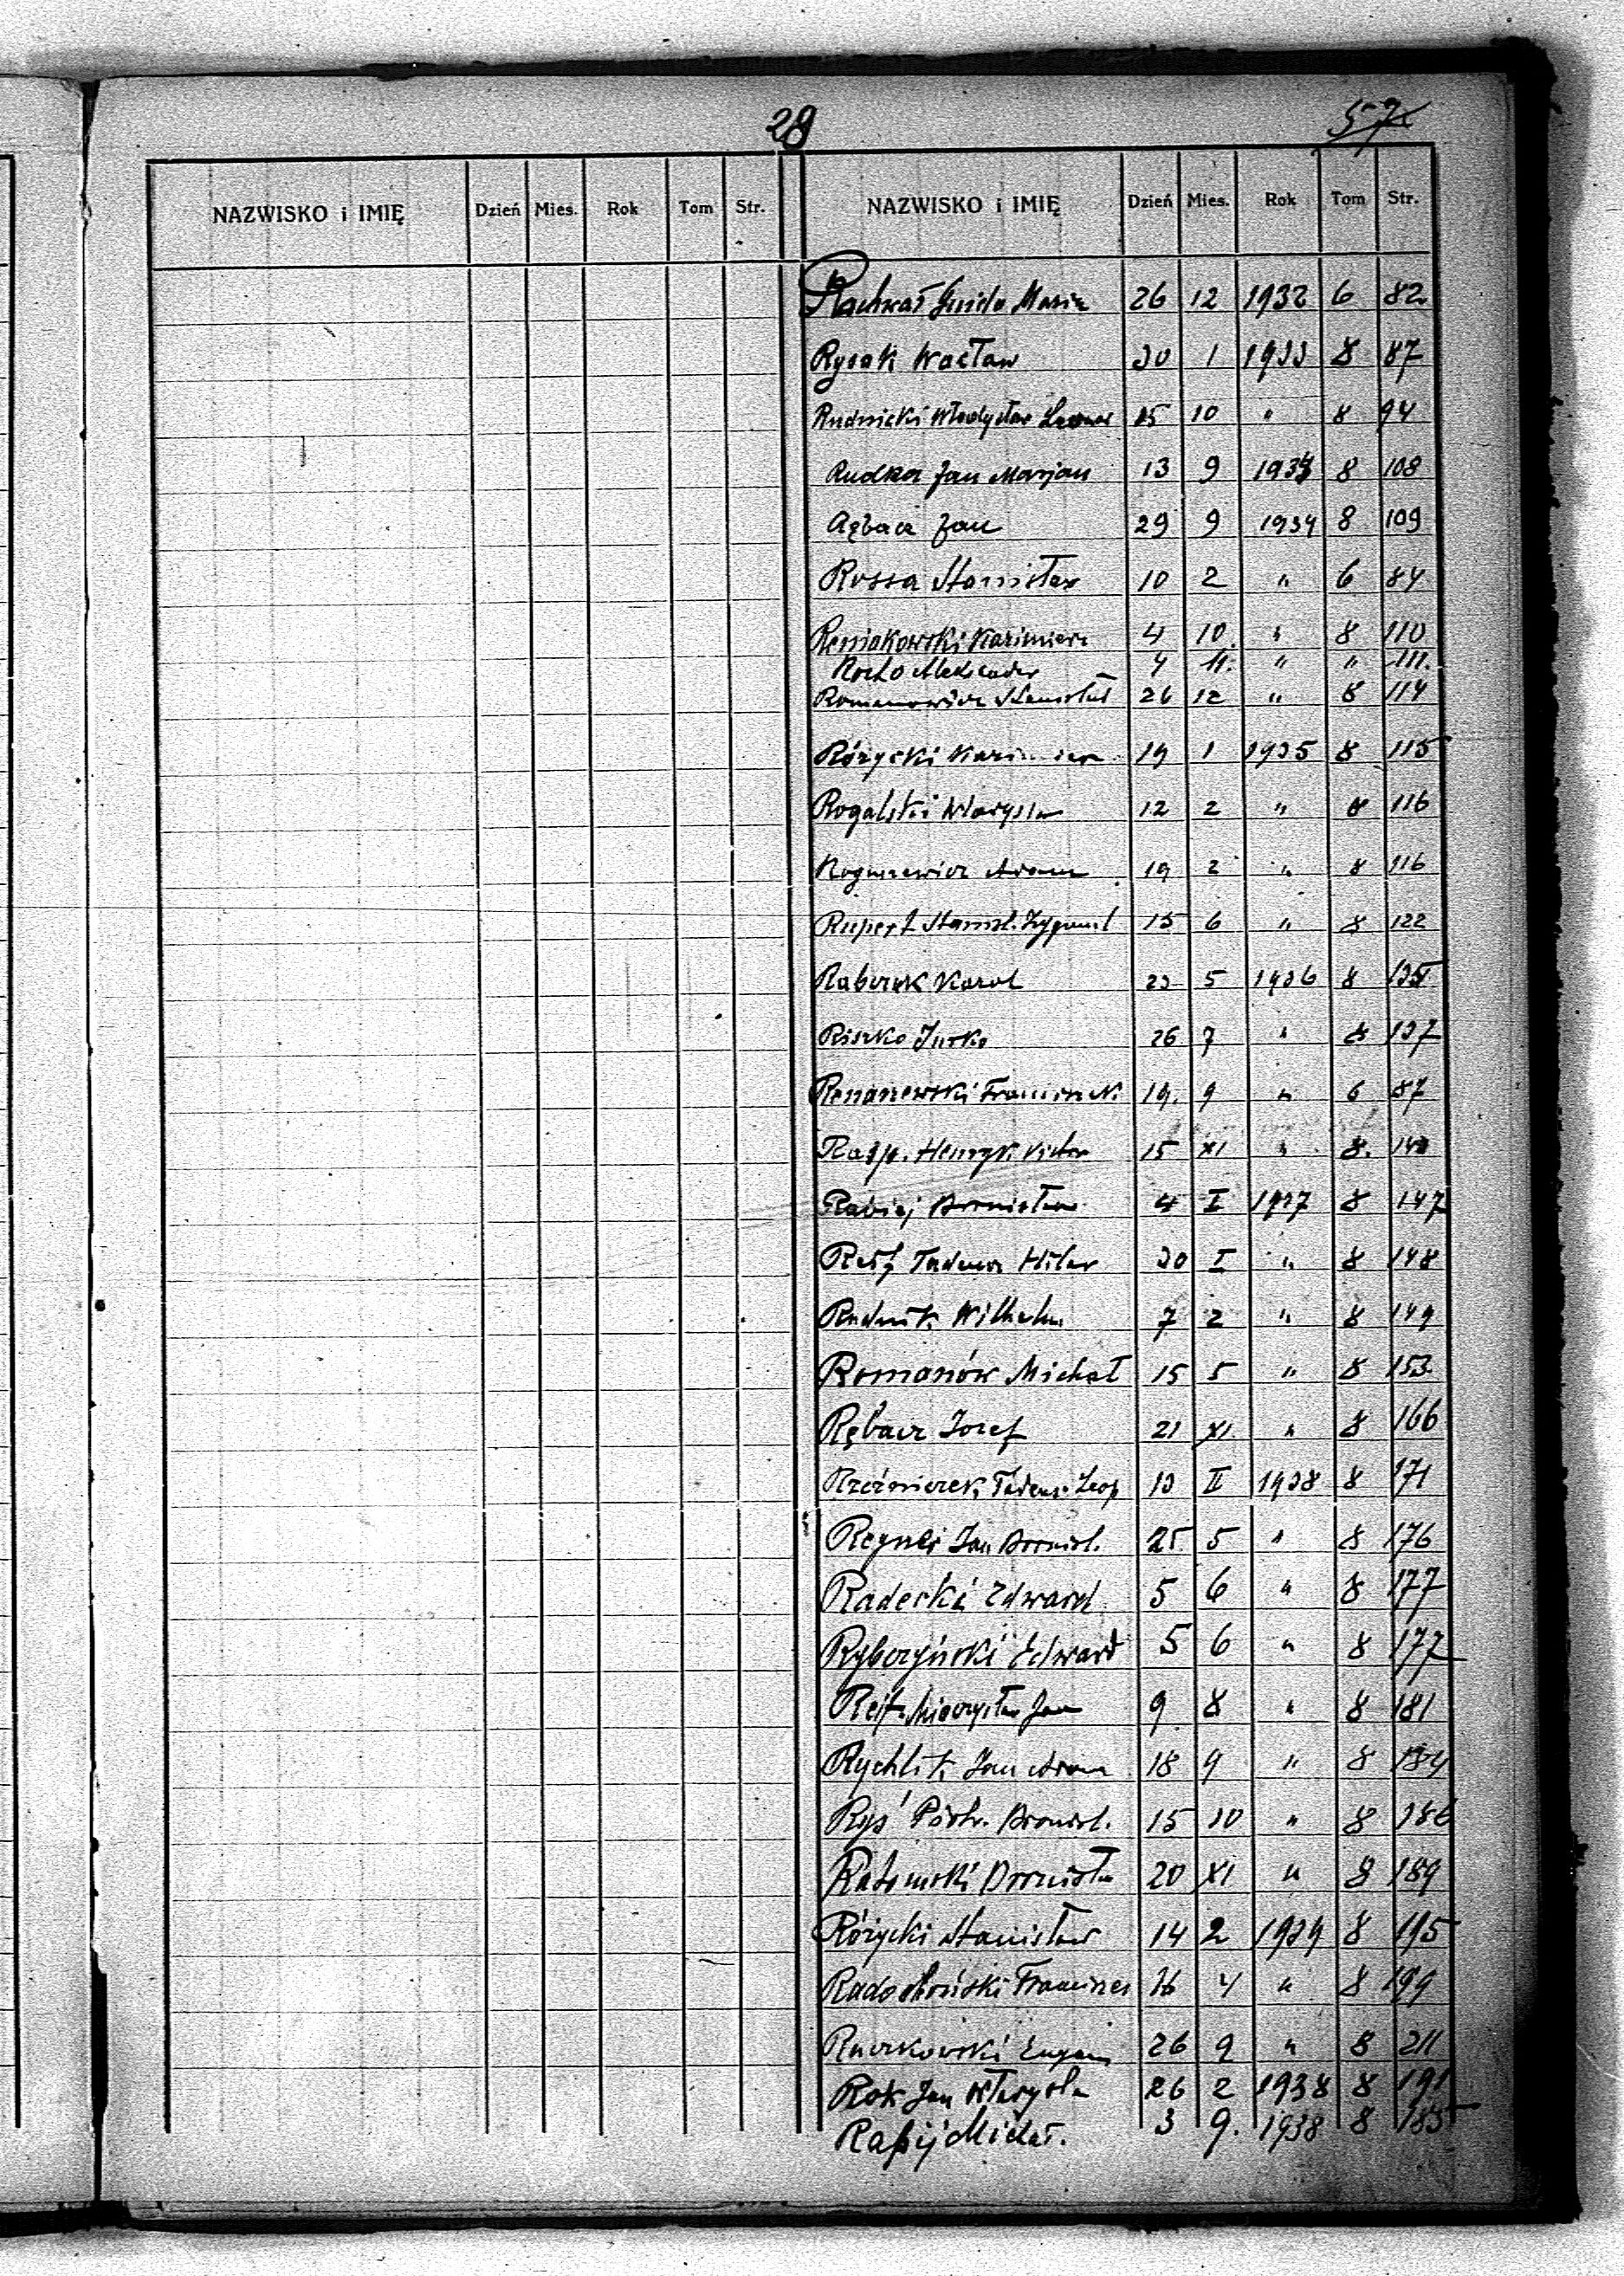 28
57
NAZWISKO i IMIĘ Dzień Mies. Rok Tom Str. NAZWISKO i IMIĘ Dzień Mies. Rok Tom Str.
Guido 26 12 1932 6 82
Rysak Wacław 30 1 1933 8 87
Rudnicki Władysław 15 10 " 8 94
Rudka Jan Marjan 13 9 1934 8 108
Rębacz Jan 29 9 1934 8 109
Rossa Stanisław 10 2 " 6 84
Kazimierz 4 10 " 8 110
Aleksander 4 11. " " 111.
Romanowicz 26 12 " 8 114
Różycki Kazimierz 19 1 1935 8 115
Rogalski 12 2 " 8 116
Adam 19 2 " 8 116
Rupert Stanisł. Zygmunt 15 6 " 8 122
Karol 23 5 1936 8 135
Riszko Jurko 26 7 " 8 137
Franciszek 19. 9 " 6 87
Henryk Victor 15 XI " 8.
Rabiej Bronisław 4 I 1937 8 147
Tadeusz 30 I " 8 148
Rudnik Wilhelm 7 2 " 8 149
Romanów Michał 15 5 " 8 153
Rębacz Józef 21 XI " 8 166
Tadeusz Leop 13 II 1938 8 171
Jan Bronisł. 25 5 " 8 176
Radecki Edward 5 6 " 8 177
Rybczyński Edward 5 6 " 8 177
Reif Mieczysław Jan 9 8 " 8 181
Rychlik Jan Adam 18 9 " 8 184
Ryś Piotr Bronisł. 15 10 " 8 186
Bronisław 20 XI " 8 189
Różycki Stanisław 14 2 1939 8 195
Radodboński 16 4 " 8 199
Ruczkowski 26 9 " 8 211
Rok Jan 26 2 1938 8 191
Rapij Michał. 3 9. 1938 8 185